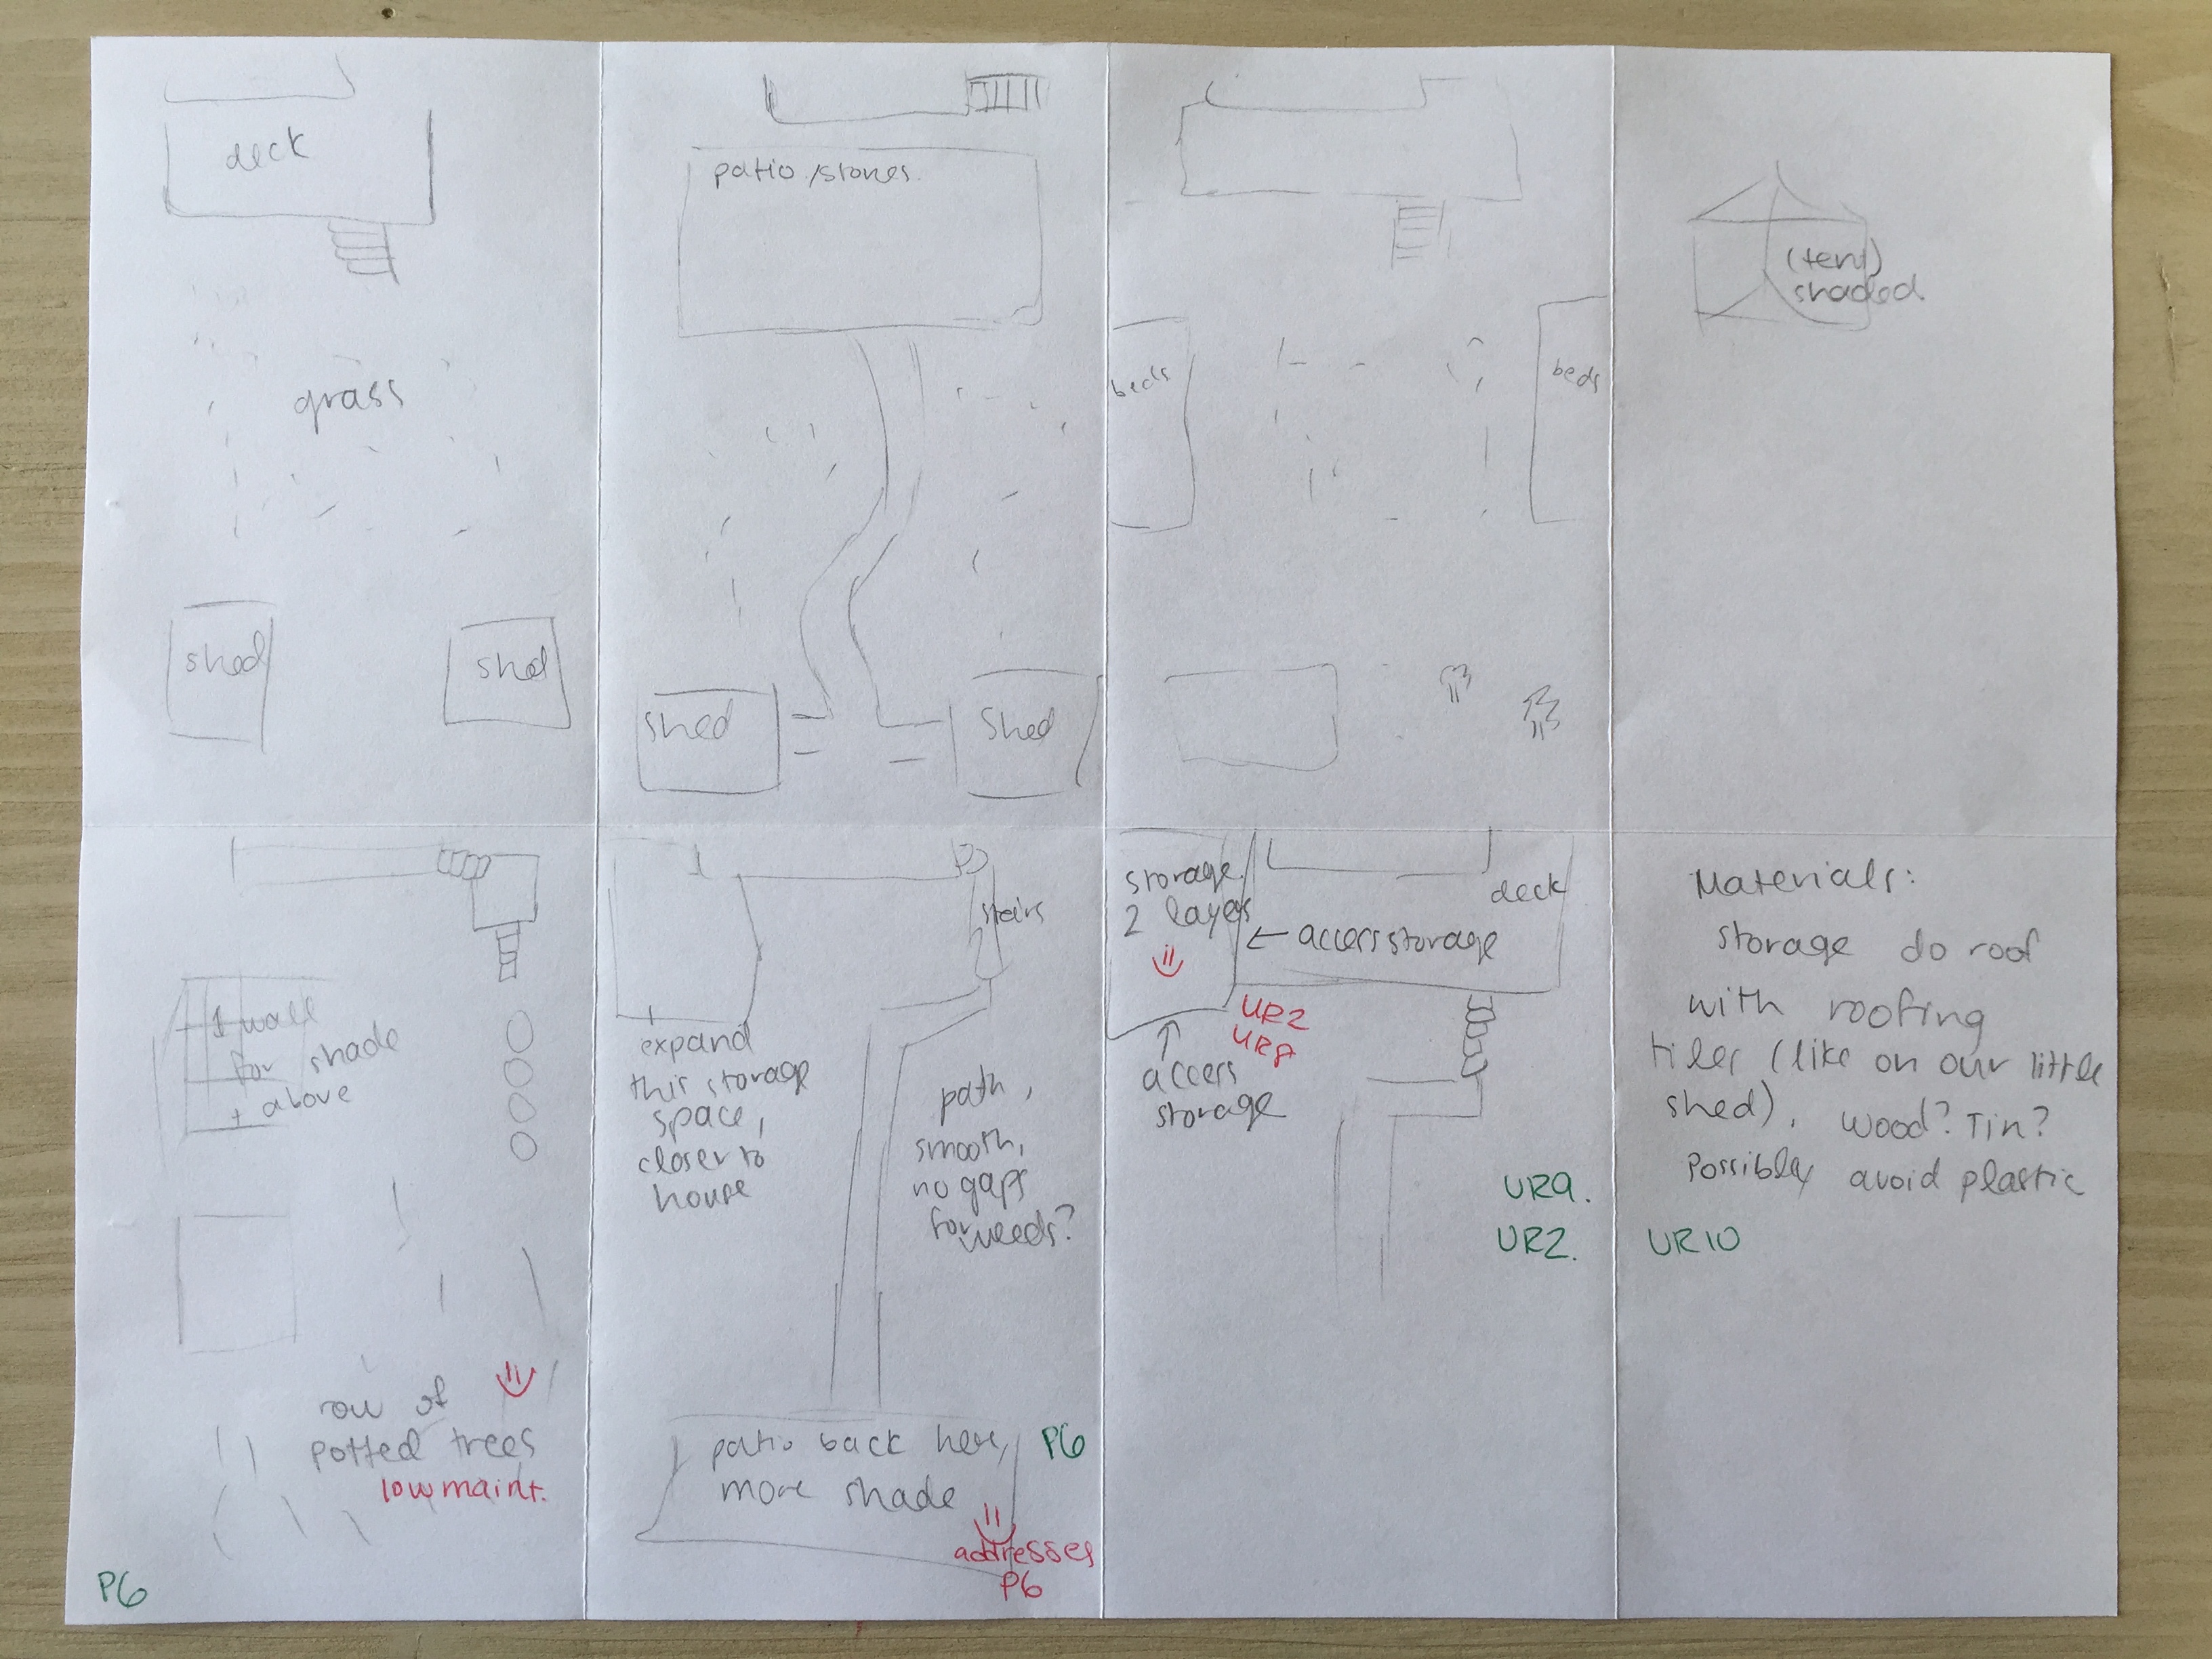 deck
grass
shed
shed
patio/stones
shed
Shed
beds
beds
(tent)
shaded
1 wall
for shade
+ above
row of
potted trees
low maint.
P6
stairs
expand
this storage
space,
closer to
house
path,
smooth,
no gaps
for weeds?
patio back here,
more shade
P6
addresses
P6
storage
2 layers
deck
← access storage
UR2
access
storage
UR9.
UR2.
Materials:
storage do roof
with roofing
tiles (like on our little
shed). Wood? Tin?
Possibly avoid plastic
UR10